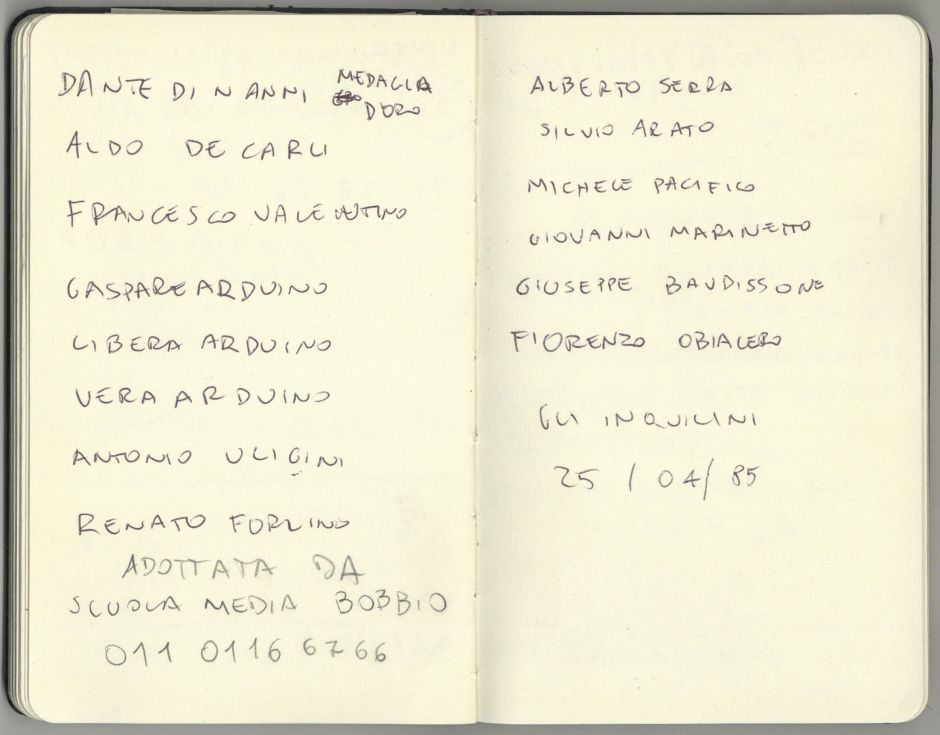 DANTE DI NANNI MEDAGLIA
D'ORO
ALDO DE CARLI
FRANCESCO VALENTINO
GASPARE ARDUINO
LIBERA ARDUINO
VERA ARDUINO
ANTONIO ULIGINI
RENATO FORLINO
ADOTTATA DA
SCUOLA MEDIA BOBBIO
011 0116 6766
ALBERTO SERRA
SILVIO ARATO
MICHELE PACIFICO
GIOVANNI MARINETTO
GIUSEPPE BAUDISSONE
FIORENZO OBIALERO
GLI INQUILINI
25 / 04/ 85